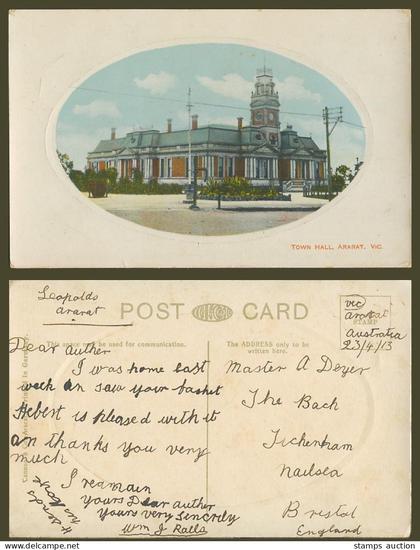 TOWN HALL, ARARAT, VIC.
Leopolds
Ararat
POST CARD
This space may be used for communication.
The ADDRESS only to be
written here.
Vic
ararat
STAMP
Australia
23/4/13
Dear auther
I was home last
week an saw your basket
Hebert is pleased with it
an thanks you very
much
I remain
Yours Dear auther
Yours very sincerly
Wm J Ralls
Master A Dozer
The Bach
Tickenham
Nailsea
Bristol
England
stamps auction